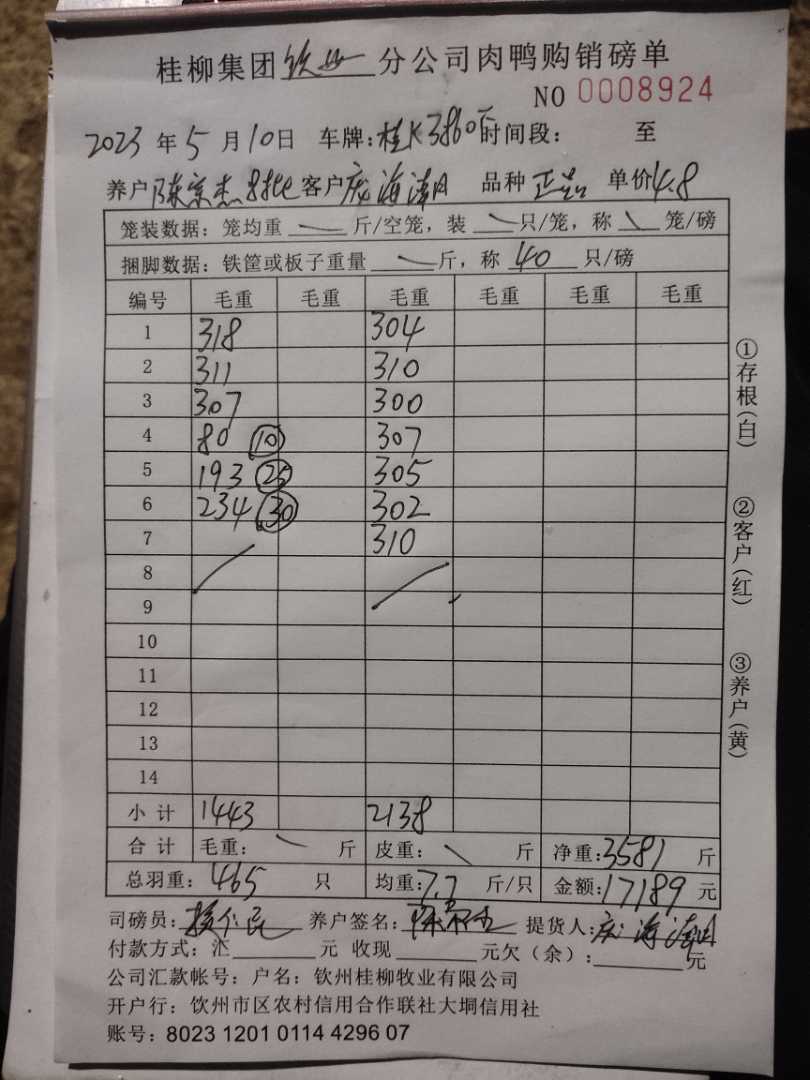 桂柳集团钦州分公司肉鸭购销磅单
NO 0008924
2023年5月10日 车牌:桂K3860 时间段: 至
养户陈宗杰 批 客户庞海清 品种 正品 单价4.8
笼装数据:笼均重 斤/空笼,装 只/笼,称 笼/磅
捆脚数据:铁筐或板子重量 斤,称 40 只/磅
编号 毛重 毛重 毛重 毛重 毛重 毛重
1 318 304
2 311 310
3 307 300
4 80 10 307
5 193 25 305
6 234 30 302
7 310
8
9
10
11
12
13
14
小计 1443 2138
合计 毛重: 斤 皮重: 斤 净重:3581 斤
总羽重:465 只 均重:7.7 斤/只 金额:17189 元
司磅员: 养户签名: 提货人:庞海清
付款方式:汇 元 收现 元欠(余): 元
公司汇款帐号:户名:钦州桂柳牧业有限公司
开户行:饮州市区农村信用合作联社大垌信用社
账号:8023 1201 0114 4296 07
①存根(白)
②客户(红)
③养户(黄)